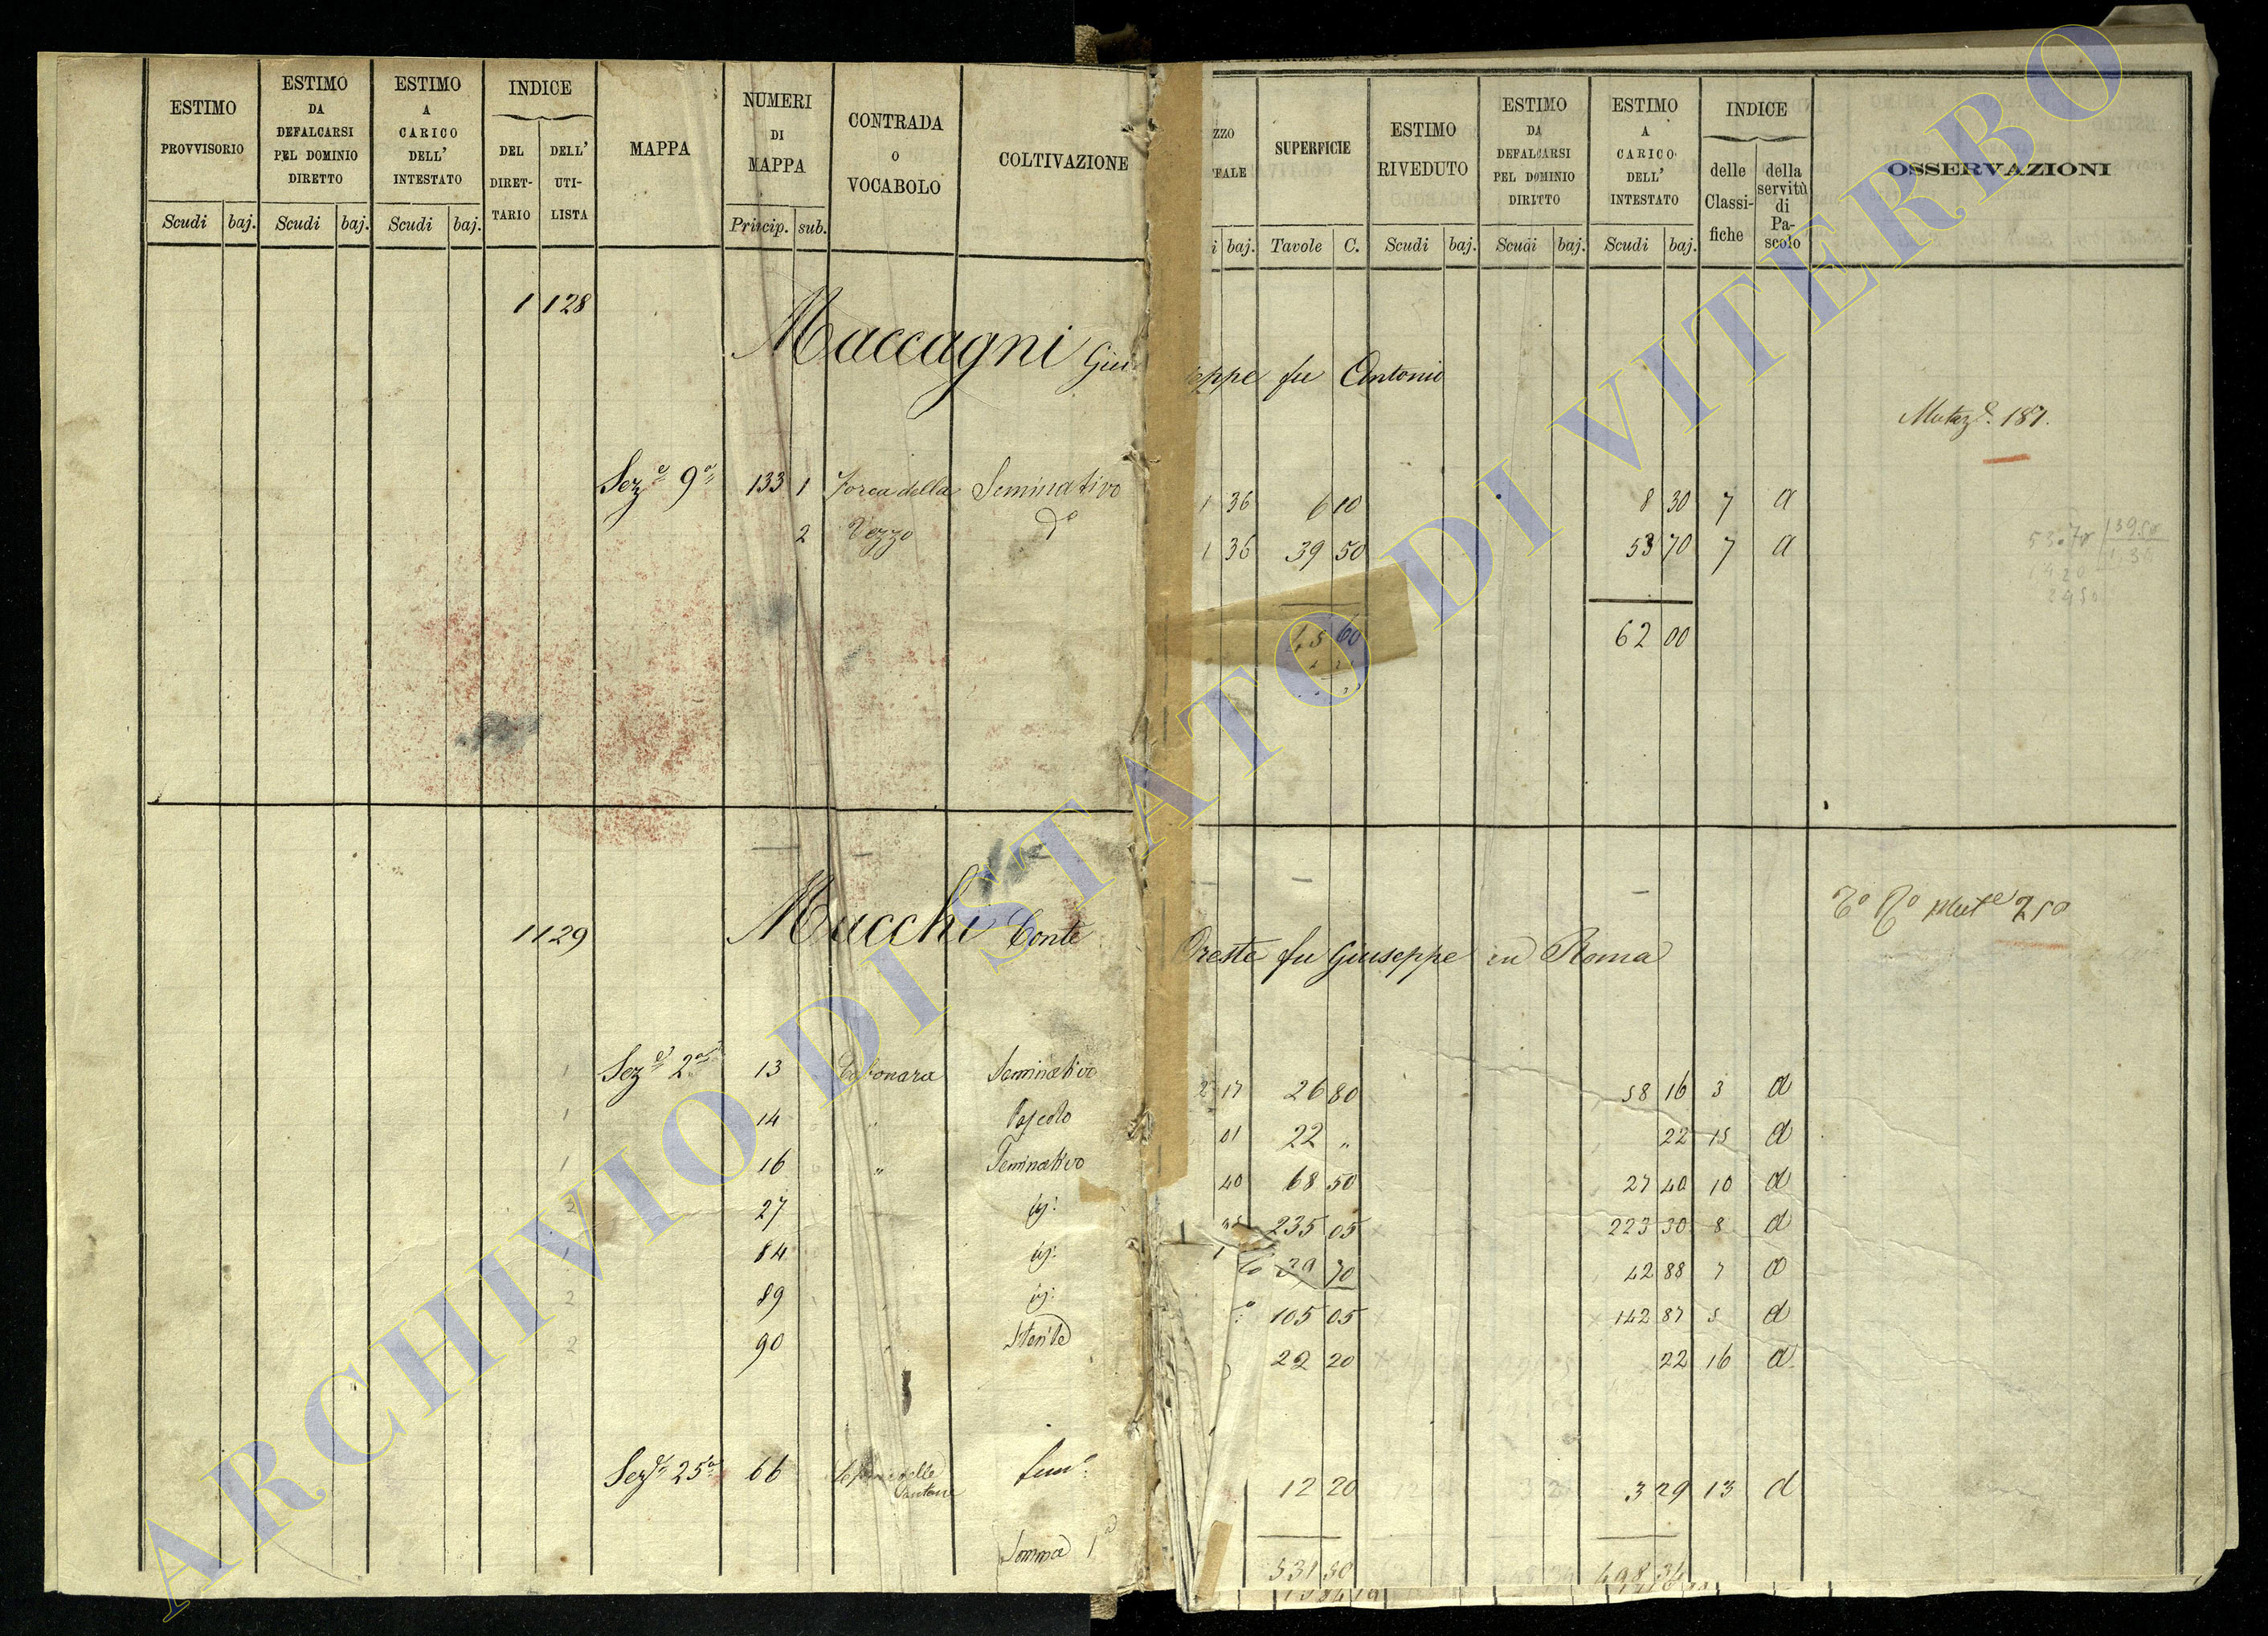 ESTIMO PROVVISORIO
Scudi baj.
ESTIMO DA DEFALCARSI PEL DOMINIO DIRETTO
Scudi baj.
ESTIMO A CARICO DELL' INTESTATO
Scudi baj.
INDICE
DEL DIRETTARIO
DELL' UTILISTA
MAPPA
NUMERI DI MAPPA
Princip. sub.
CONTRADA O VOCABOLO
COLTIVAZIONE
ZZO
baj.
SUPERFICIE
Tavole C.
ESTIMO RIVEDUTO
Scudi baj.
ESTIMO DA DEFALCARSI PEL DOMINIO DIRITTO
Scudi baj.
ESTIMO A CARICO DELL' INTESTATO
Scudi baj.
INDICE
delle Classifiche
della servitù di Pascolo
OSSERVAZIONI
1128
Maccagni Giuseppe fu Antonio
Mutaze. 187.
Seze 9a 133 1 Forca della Seminativo 1 36 6 10 8 30 7 a
2 Vezzo do 1 36 39 50 53 70 7 a
45 60 62 00
1129
Macchi Conte Oreste fu Giuseppe in Roma
Mute 250
1 Seze 2a 13 Seminativo 2 17 26 80 58 16 3 d
1 14 " Pascolo 01 22 " 22 15 d
1 16 " Seminativo 40 68 50 27 40 10 d
2 27 235 05 223 30 8 d
1 84 39 70 42 88 7 d
2 89 105 05 142 87 5 d
2 90 Sterile 22 20 22 16 d
Seze 25a 66 Semo 12 20 3 29 13 d
Somma 1a 531 50 498 34
ARCHIVIO DI STATO DI VITERBO